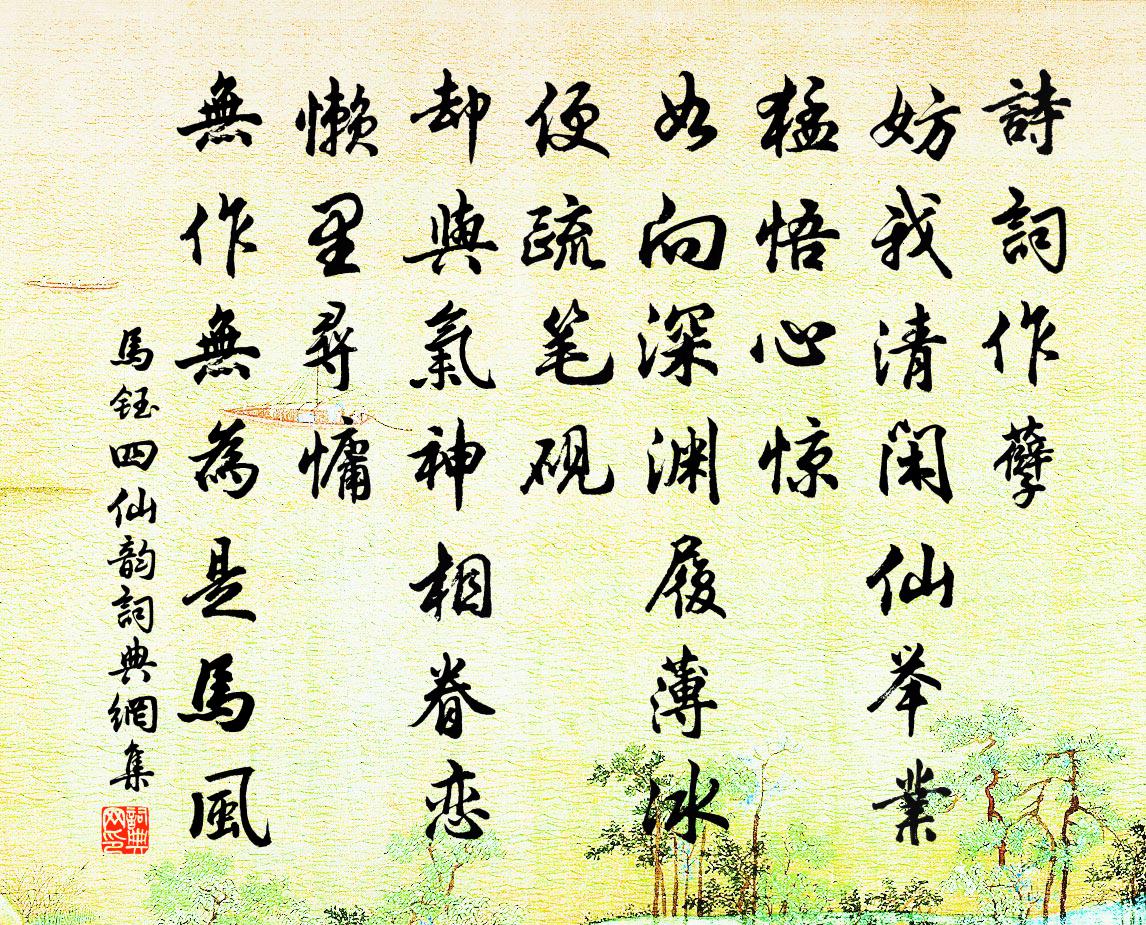 詩詞作孽
妨我清閑仙举業
猛悟心惊
如向深渊履薄冰
便疏笔砚
却與氣神相眷恋
懒里尋慵
無作無為是馬風
馬钰四仙韵詞典網集
詞典网印